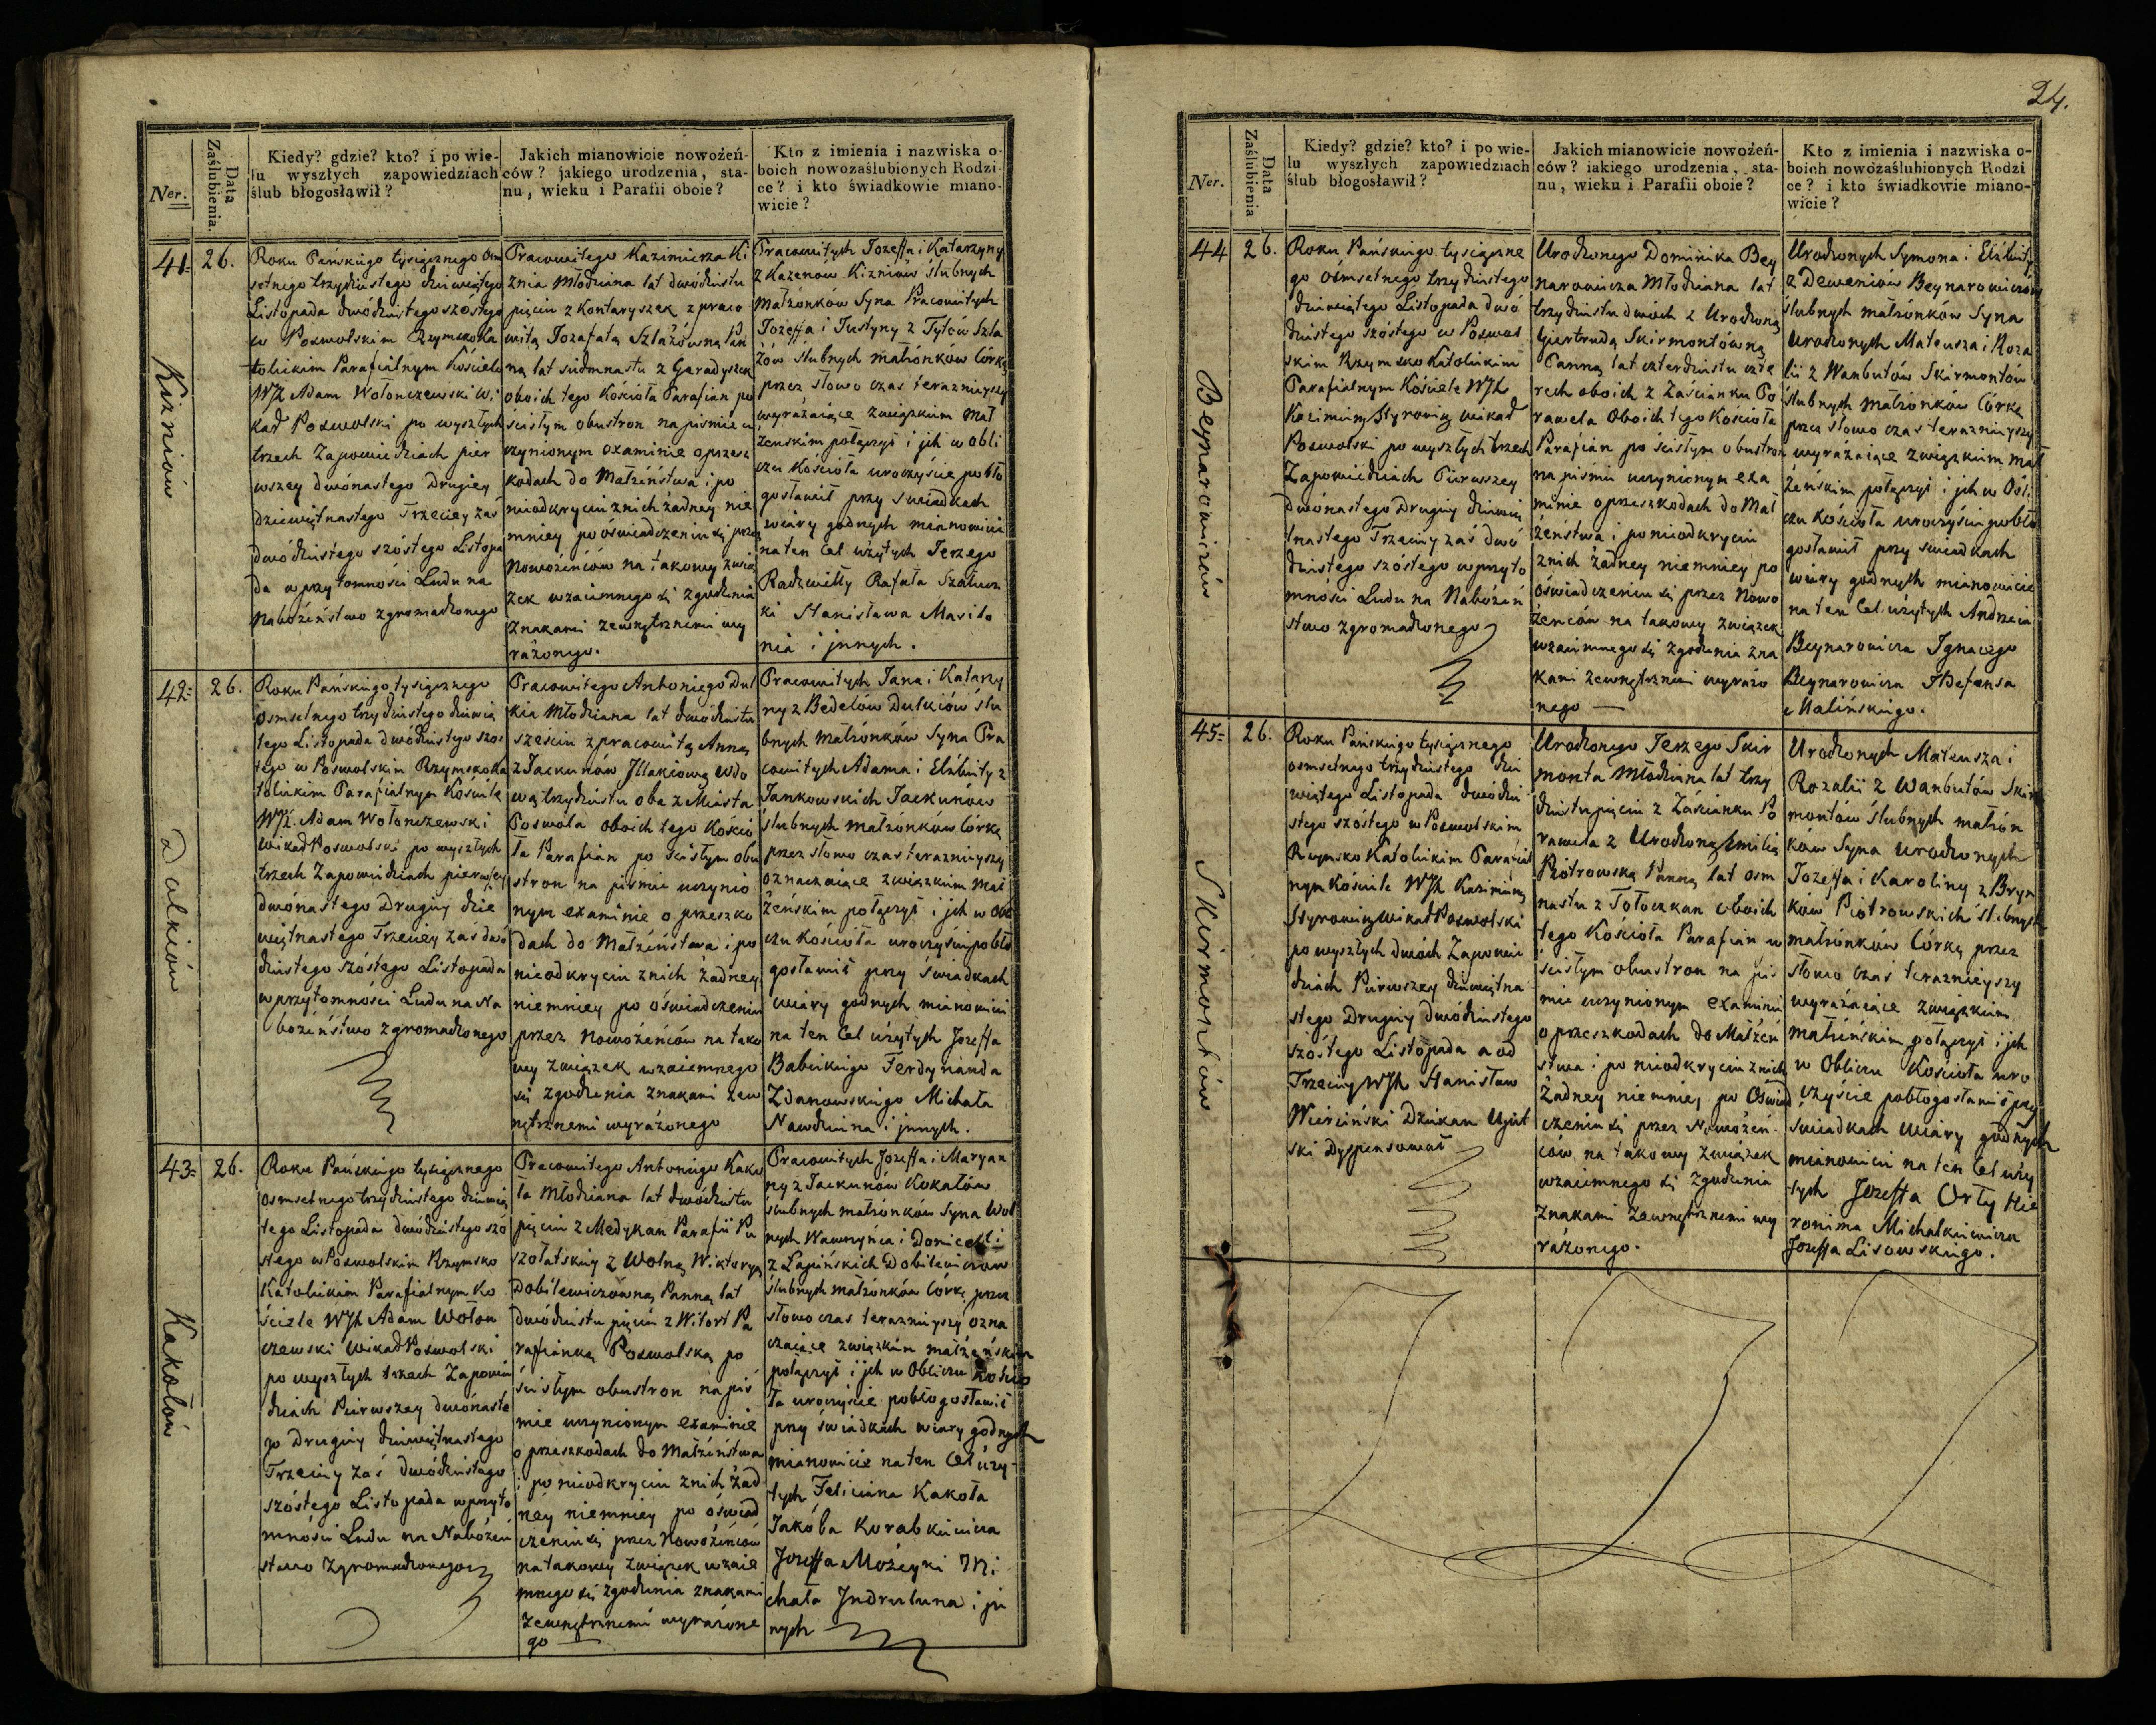 Ner.
Data
Zaślubienia.
Kiedy? gdzie? kto? i po wie-
lu wyszłych zapowiedziach
ślub błogosławił?
Jakich mianowicie nowożeń-
ców? jakiego urodzenia, sta-
nu, wieku i Parafii oboie?
Kto z imienia i nazwiska o-
boich nowozaślubionych Rodzi-
ce? i kto świadkowie miano-
wicie?
41.
26.
Kizniów
Roku Pańskiego tysiącznego Osm
setnego trzydziestego dziewiątego
Listopada dwódziestego szóstego
w Poswolskim Rzymskoka
tolickim Parafialnym Kościele
WJX Adam Wołonczewski Wi
kar Poswolski po wyszłych
trzech Zapowiedziach pier
wszey dwónastego Drugiey
dziewiętnastego Trzeciey zaś
dwódziestego szóstego Listopa
da w przytomności Ludu na
Nabożeństwo zgromadzonego
Pracowitego Kazimierza Ki
znia Młodziana lat dwódziestu
pięciu z Kontaryszek z praco
witą Jozafatą Szlażówną Pan
ną lat siedmnastu z Garadyszek
oboich tego Kościoła Parafian po
ścisłym obustron na piśmie u
czynionym examinie o przesz
kodach do Małżeństwa i po
nieodkryciu z nich żadney nie
mniey po oświadczeniu się przez
Nowożeńców na takowy zwią
zek wzaiemnego się zgodzenia
znakami zewnętrznemi wy
rażonego.
Pracowitych Jozeffa i Katarzyny
z Kazenow Kizniow ślubnych
Małżonków Syna Pracowitych
Jozeffa i Justyny z Tytów Szla
żów ślubnych małżonków Córkę
przez słowo czas teraznieyszy
wyrażaiące związkiem Mał
żenskim połączył i ich w obli
czu Kościoła uroczyście pobło
gosławił przy swiadkach
wiary godnych mianowicie
na ten Cel użytych Jerzego
Radziwiłły Rafała
ki Stanisława
nia i innych.
42.
26.
Dulkiów
Roku Pańskiego tysiącznego
osmsetnego trzydziestego dziewią
tego Listopada dwódziestego szós
tego w Poswolskim Rzymskoka
tolickim Parafialnym Kościele
WJX. Adam Wołonczewski
Wikar Poswolski po wyszłych
trzech Zapowiedziach pierwszey
Dwónastego Drugiey dzie
więtnastego Trzeciey zaś dwó
dziestego szóstego Listopada
w przytomności Ludu na Na
bożeństwo zgromadzonego
Pracowitego Antoniego Dul
kia Młodziana lat dwódziestu
sześciu z pracowitą Anną
z Jackunów Illakiową Wdo
wą trzydziestu oba z Miasta
Poswola oboich tego Kościo
ła Parafian po ścisłym obu
stron na piśmie uczynio
nym examinie o przeszko
dach do Małżeństwa i po
nieodkryciu z nich żadney
niemniey po oświadczeniu
przez Nowożeńców na tako
wy związek wzaiemnego
się zgodzenia znakami zew
nętrznemi wyrażonego
Pracowitych Jana i Katarzy
ny z Bedelów Dulkiów ślu
bnych małżonków Syna Pra
cowitych Adama i Elżbiety z
Jankowskich Jackunów
ślubnych małżonków Córkę
przez słowo czas teraznieyszy
oznaczaiące związkiem mał
żeńskim połączył i ich w obli
czu Kościoła uroczyście pobło
gosławił przy świadkach
wiary godnych mianowici
na ten Cel użytych Jozeffa
Babickiego Ferdynanda
Zdanowskiego Michała
Nawdziuna i innych.
43.
26.
Kakołów
Roku Pańskiego tysiącznego
osmsetnego trzydziestego dziewią
tego Listopada dwódziestego szó
stego w Poswolskim Rzymsko
Katolickim Parafialnym Ko
ściele WJX Adam Wołon
czewski Wikar Poswolski
po wyszłych trzech Zapowie
dziach Pierwszey dwónaste
go Drugiey dziewiętnastego
Trzeciey zaś dwódziestego
szóstego Listopada w przyto
mności Ludu na Nabożeń
stwo zgromadzonego
Pracowitego Antoniego Kako
ła Młodziana lat dwódziestu
pięciu z Medykan Parafii Pu
szołatskiey z Wolną Wiktoryą
Dobilewiczówną Panną lat
dwódziestu pięciu z Witort Pa
rafianką Poswolską po
ścisłym obustron na piś
mie uczynionym examinie
o przeszkodach do Małżeństwa
i po nieodkryciu z nich żad
ney niemniey po oświad
czeniu się przez Nowożeńców
na takowy związek wzaie
mnego się zgodzenia znakami
zewnętrznemi wyrażone
go
Pracowitych Jozeffa i Maryan
ny z Jackunow Kokałów
ślubnych małżonków Syna Wol
nych Wawrzyńca i Domicelli
z Łapińskich Dobilewiczow
ślubnych małżonków Córkę przez
słowo czas teraznieyszy ozna
czaiące związkiem małżeńskim
połączył i ich w Obliczu Kościo
ła uroczyście pobłogosławił
przy świadkach wiary godnych
mianowicie na ten Cel uży-
tych Feliciana Kakoła
Jakóba Korabkiewicza
Jozeffa Możeyki Mi
chała Indruluna i in
nych
24.
Ner.
Data
Zaślubienia
Kiedy? gdzie? kto? i po wie-
lu wyszłych zapowiedziach
ślub błogosławił?
Jakich mianowicie nowożeń-
ców? iakiego urodzenia, sta-
nu, wieku i Parafii oboie?
Kto z imienia i nazwiska o-
boich nowozaślubionych Rodzi
ce? i kto świadkowie miano-
wicie?
44
26.
Beynarowiczów
Roku Pańskiego tysiączne
go osmsetnego trzydziestego
dziewiątego Listopada dwó
dziestego szóstego w Poswol
skim Rzymsko Katolickim
Parafialnym Kościele WJX
Kazimierz Styrowicz wikar
Poswolski po wyszłych trzech
Zapowiedziach Pierwszey
dwónastego Drugiey dziewię
tnastego Trzeciey zaś dwó
dziestego szóstego w przyto
mności Ludu na Nabożeń
stwo zgromadzonego
Urodzonego Dominika Bey
narowicza Młodziana lat
trzydziestu dwóch z Urodzoną
Giertrudą Skirmontówną
Panną lat czterdziestu czte
rech oboich z Zaścianku Po
rawela Oboich tego Kościoła
Parafian po ścisłym obustron
na piśmie uczynionym exa
minie o przeszkodach do Mał
żeństwa i po nieodkryciu
z nich żadney niemniey po
oświadczeniu się przez Nowo
żeńców na takowy związek
wzaiemnego się zgodzenia zna
kami zewnętrznemi wyrażo
nego
Urodzonych Symona i Elżbiety
z Deweniów Beynarowiczów
ślubnych małżonków Syna
Urodzonych Mateusza i Roza
lii z Wanbutów Skirmontów
ślubnych małżonków Córkę
przez słowo czas teraznieyszy
wyrażaiące związkiem mał
żeńskim połączył i ich w Obli
czu Kościoła uroczyście pobło
gosławił przy swiadkach
wiary godnych mianowicie
na ten Cel użytych Andrzeia
Beynarowicza Ignacego
Beynarowicza Ildefonsa
Malińskiego.
45.
26.
Skirmontów
Roku Pańskiego tysiącznego
osmsetnego trzydziestego dzie
wiątego Listopada dwódzie
stego szóstego w Poswolskim
Rzymsko Katolickim Parafial
nym Kościele WJX Kazimierz
Styrowicz Wikar Poswolski
po wyszłych dwóch Zapowie
dziach Pierwszey dziewiętna
stego Drugiey dwódziestego
szóstego Listopada a od
Trzeciey WJX Stanisław
Wierciński Dziekan Upit
ski dyspensował
Urodzonego Jerzego Skir
monta Młodziana lat trzy
dziestu pięciu z Zaścianku Po
rawela z Urodzoną Emilią
Piotrowską Panną lat osm
nastu z Tołoczkan oboich
tego Kościoła Parafian w
ścisłym obustron na piś
mie uczynionym examini
o przeszkodach do Małżeń
stwa i po nieodkryciu z nich
Żadney niemniey po Oświad
czeniu się przez Nowożeń
ców na takowy związek
wzaiemnego się zgodzenia
znakami zewnętrznemi wy
rażonego.
Urodzonych Mateusza i
Rozalii z Wanbutów Skir
montów ślubnych małżon
ków Syna Urodzonych
Jozeffa i Karoliny z Bryn
ków Piotrowskich ślubnych
małżonków Córkę przez
słowo czas teraznieyszy
wyrażaiące związkiem
małżeńskim połączył i ich
w Obliczu Kościoła uro
czyście pobłogosławił przy
świadkach wiary godnych
mianowicie na ten Cel uży
tych Jozeffa Orły Hie
ronima Michalkiewicza
Jozeffa Lisowskiego.